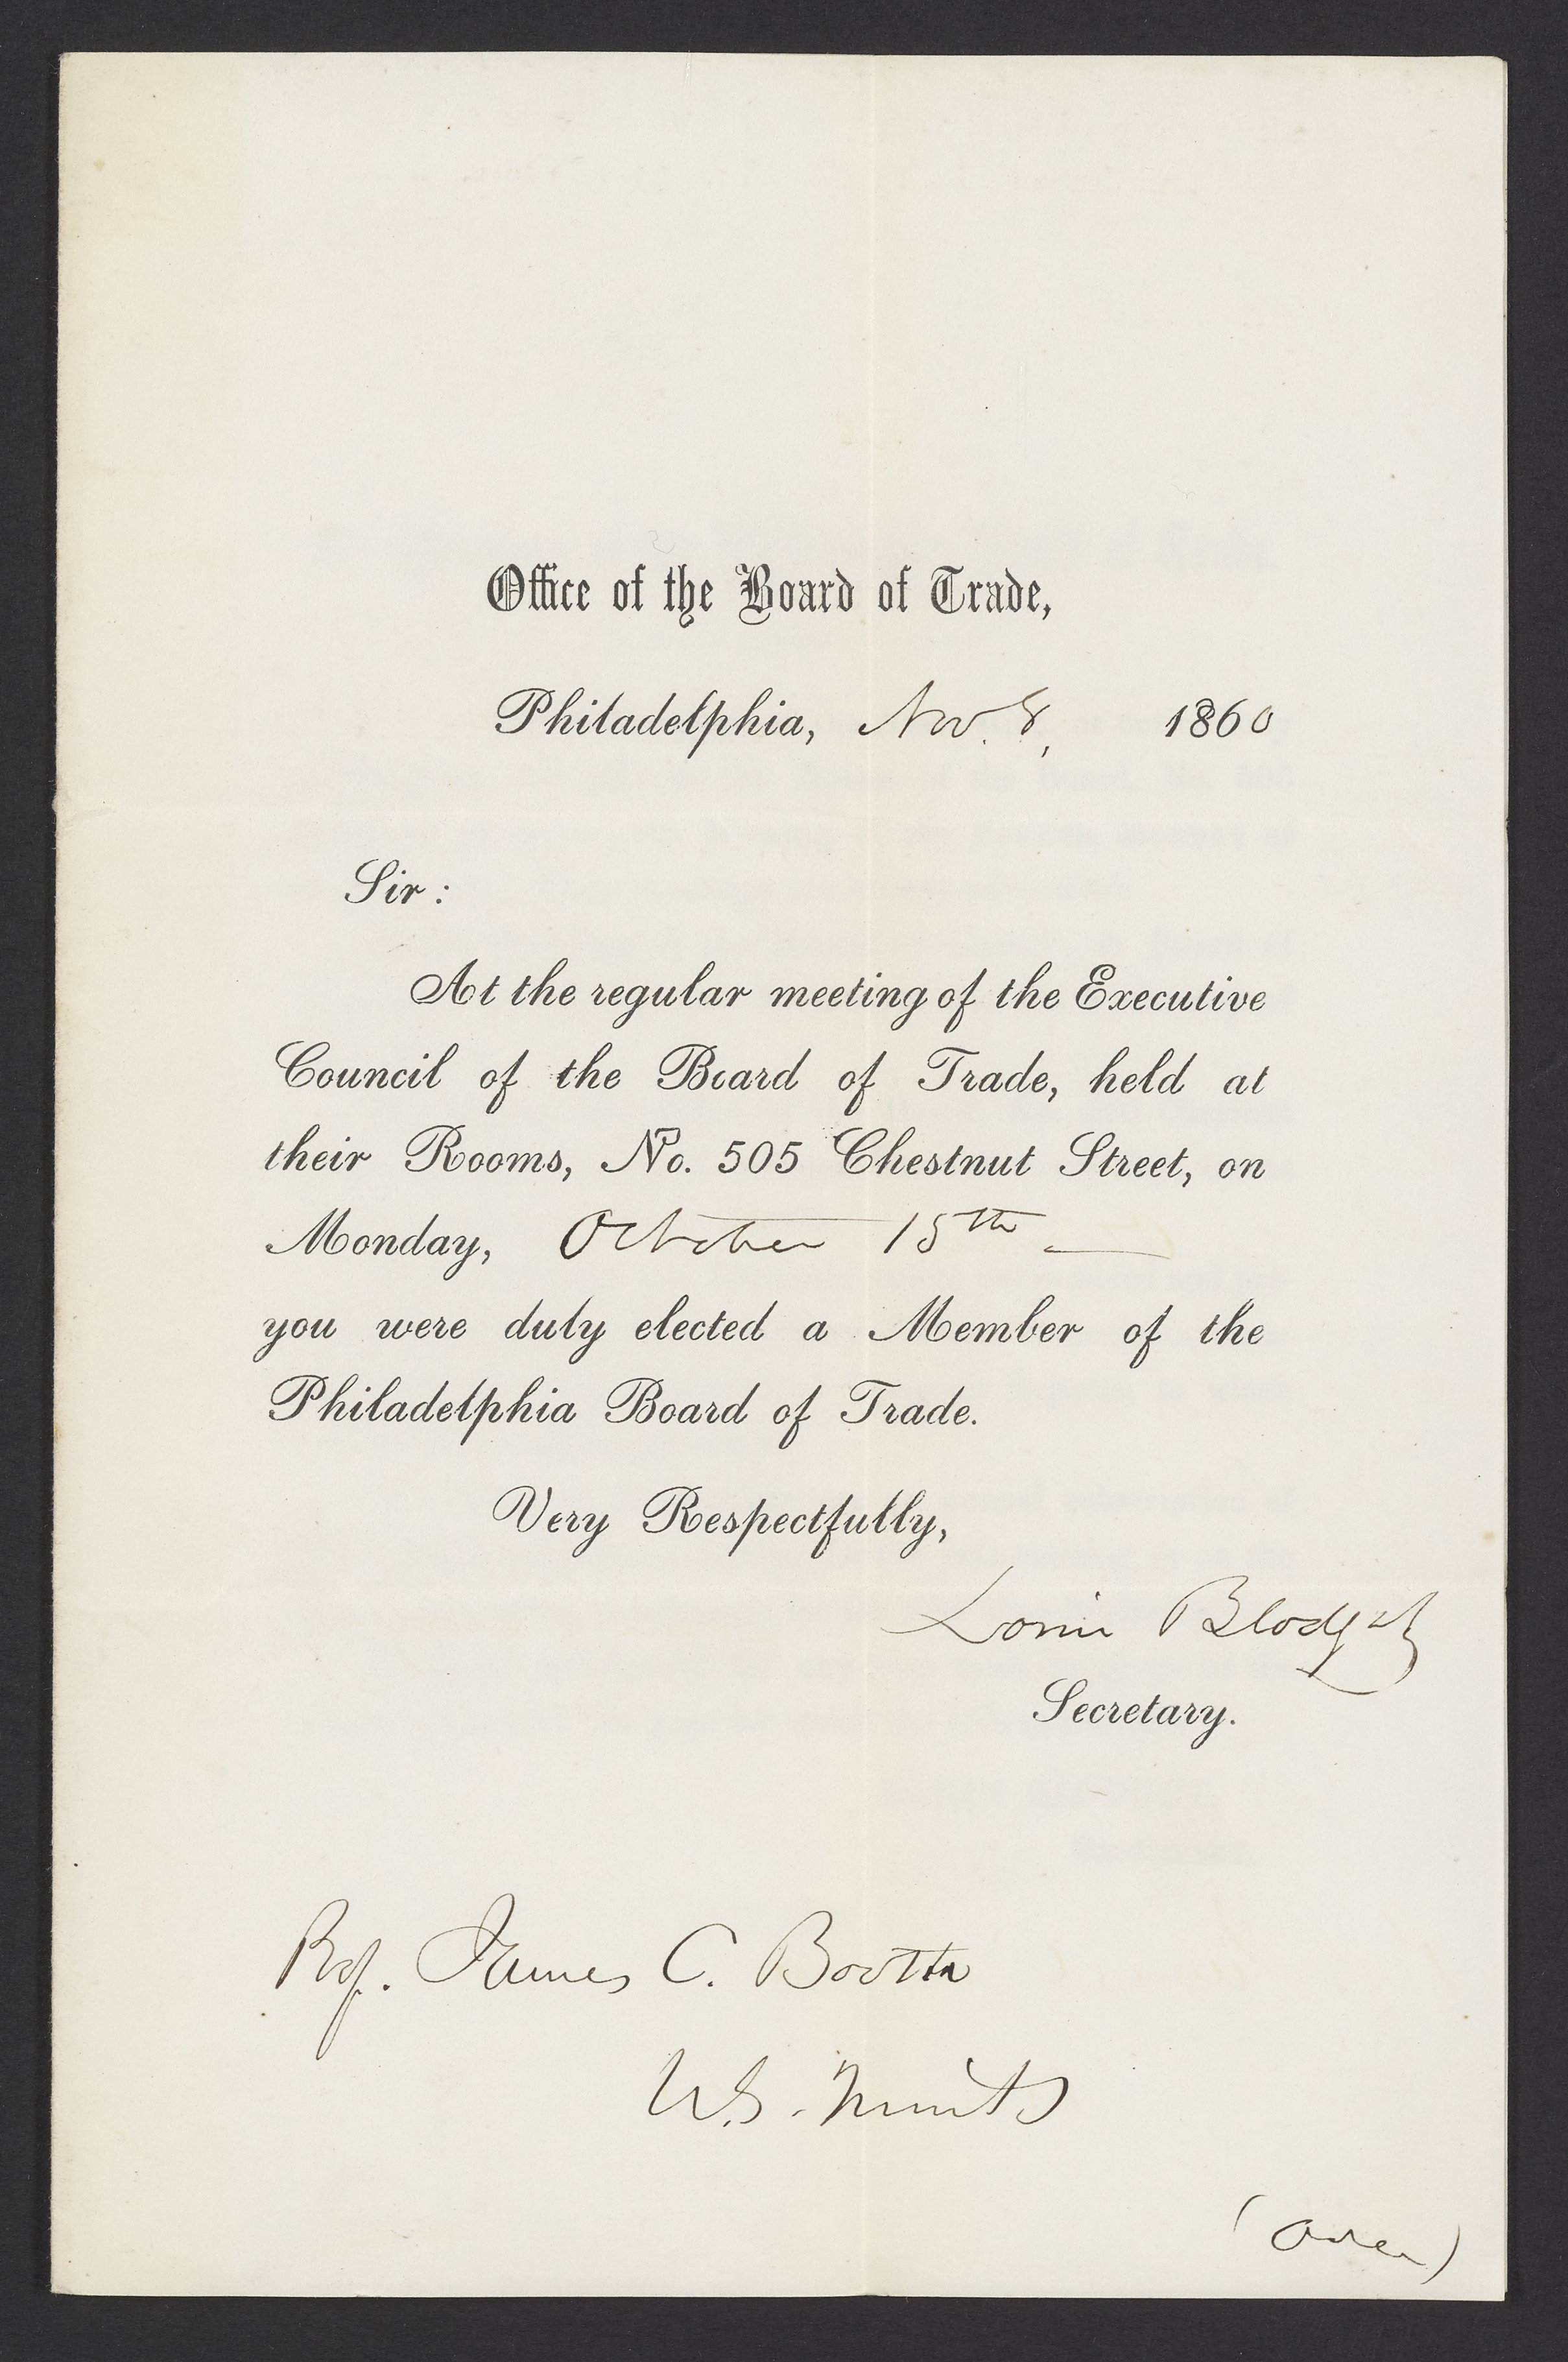 Office of the Board of Trade,
Philadelphia, Nov. 8, 1860
Sir:
At the regular meeting of the Executive
Council of the Board of Trade, held at
their Rooms, No. 505 Chestnut Street, on
Monday, October 15th
you were duly elected a Member of the
Philadelphia Board of Trade.
Very Respectfully,
Lorin Blodget
Secretary.
Prof. James C. Booth
U.S. Mint
(over)